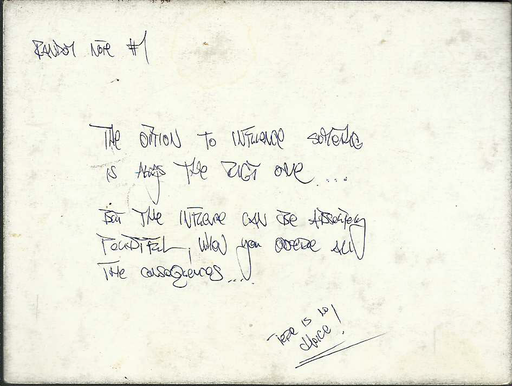 RANDOM NOTE #1
THE OPTION TO INFLUENCE SOMETHING
IS ALWAYS THE RIGHT ONE ....
BUT THE INFLUENCE CAN BE
, WHEN you OBSERVE ALL
THE CONSEQUENCES....
THERE IS NO
CHOICE!